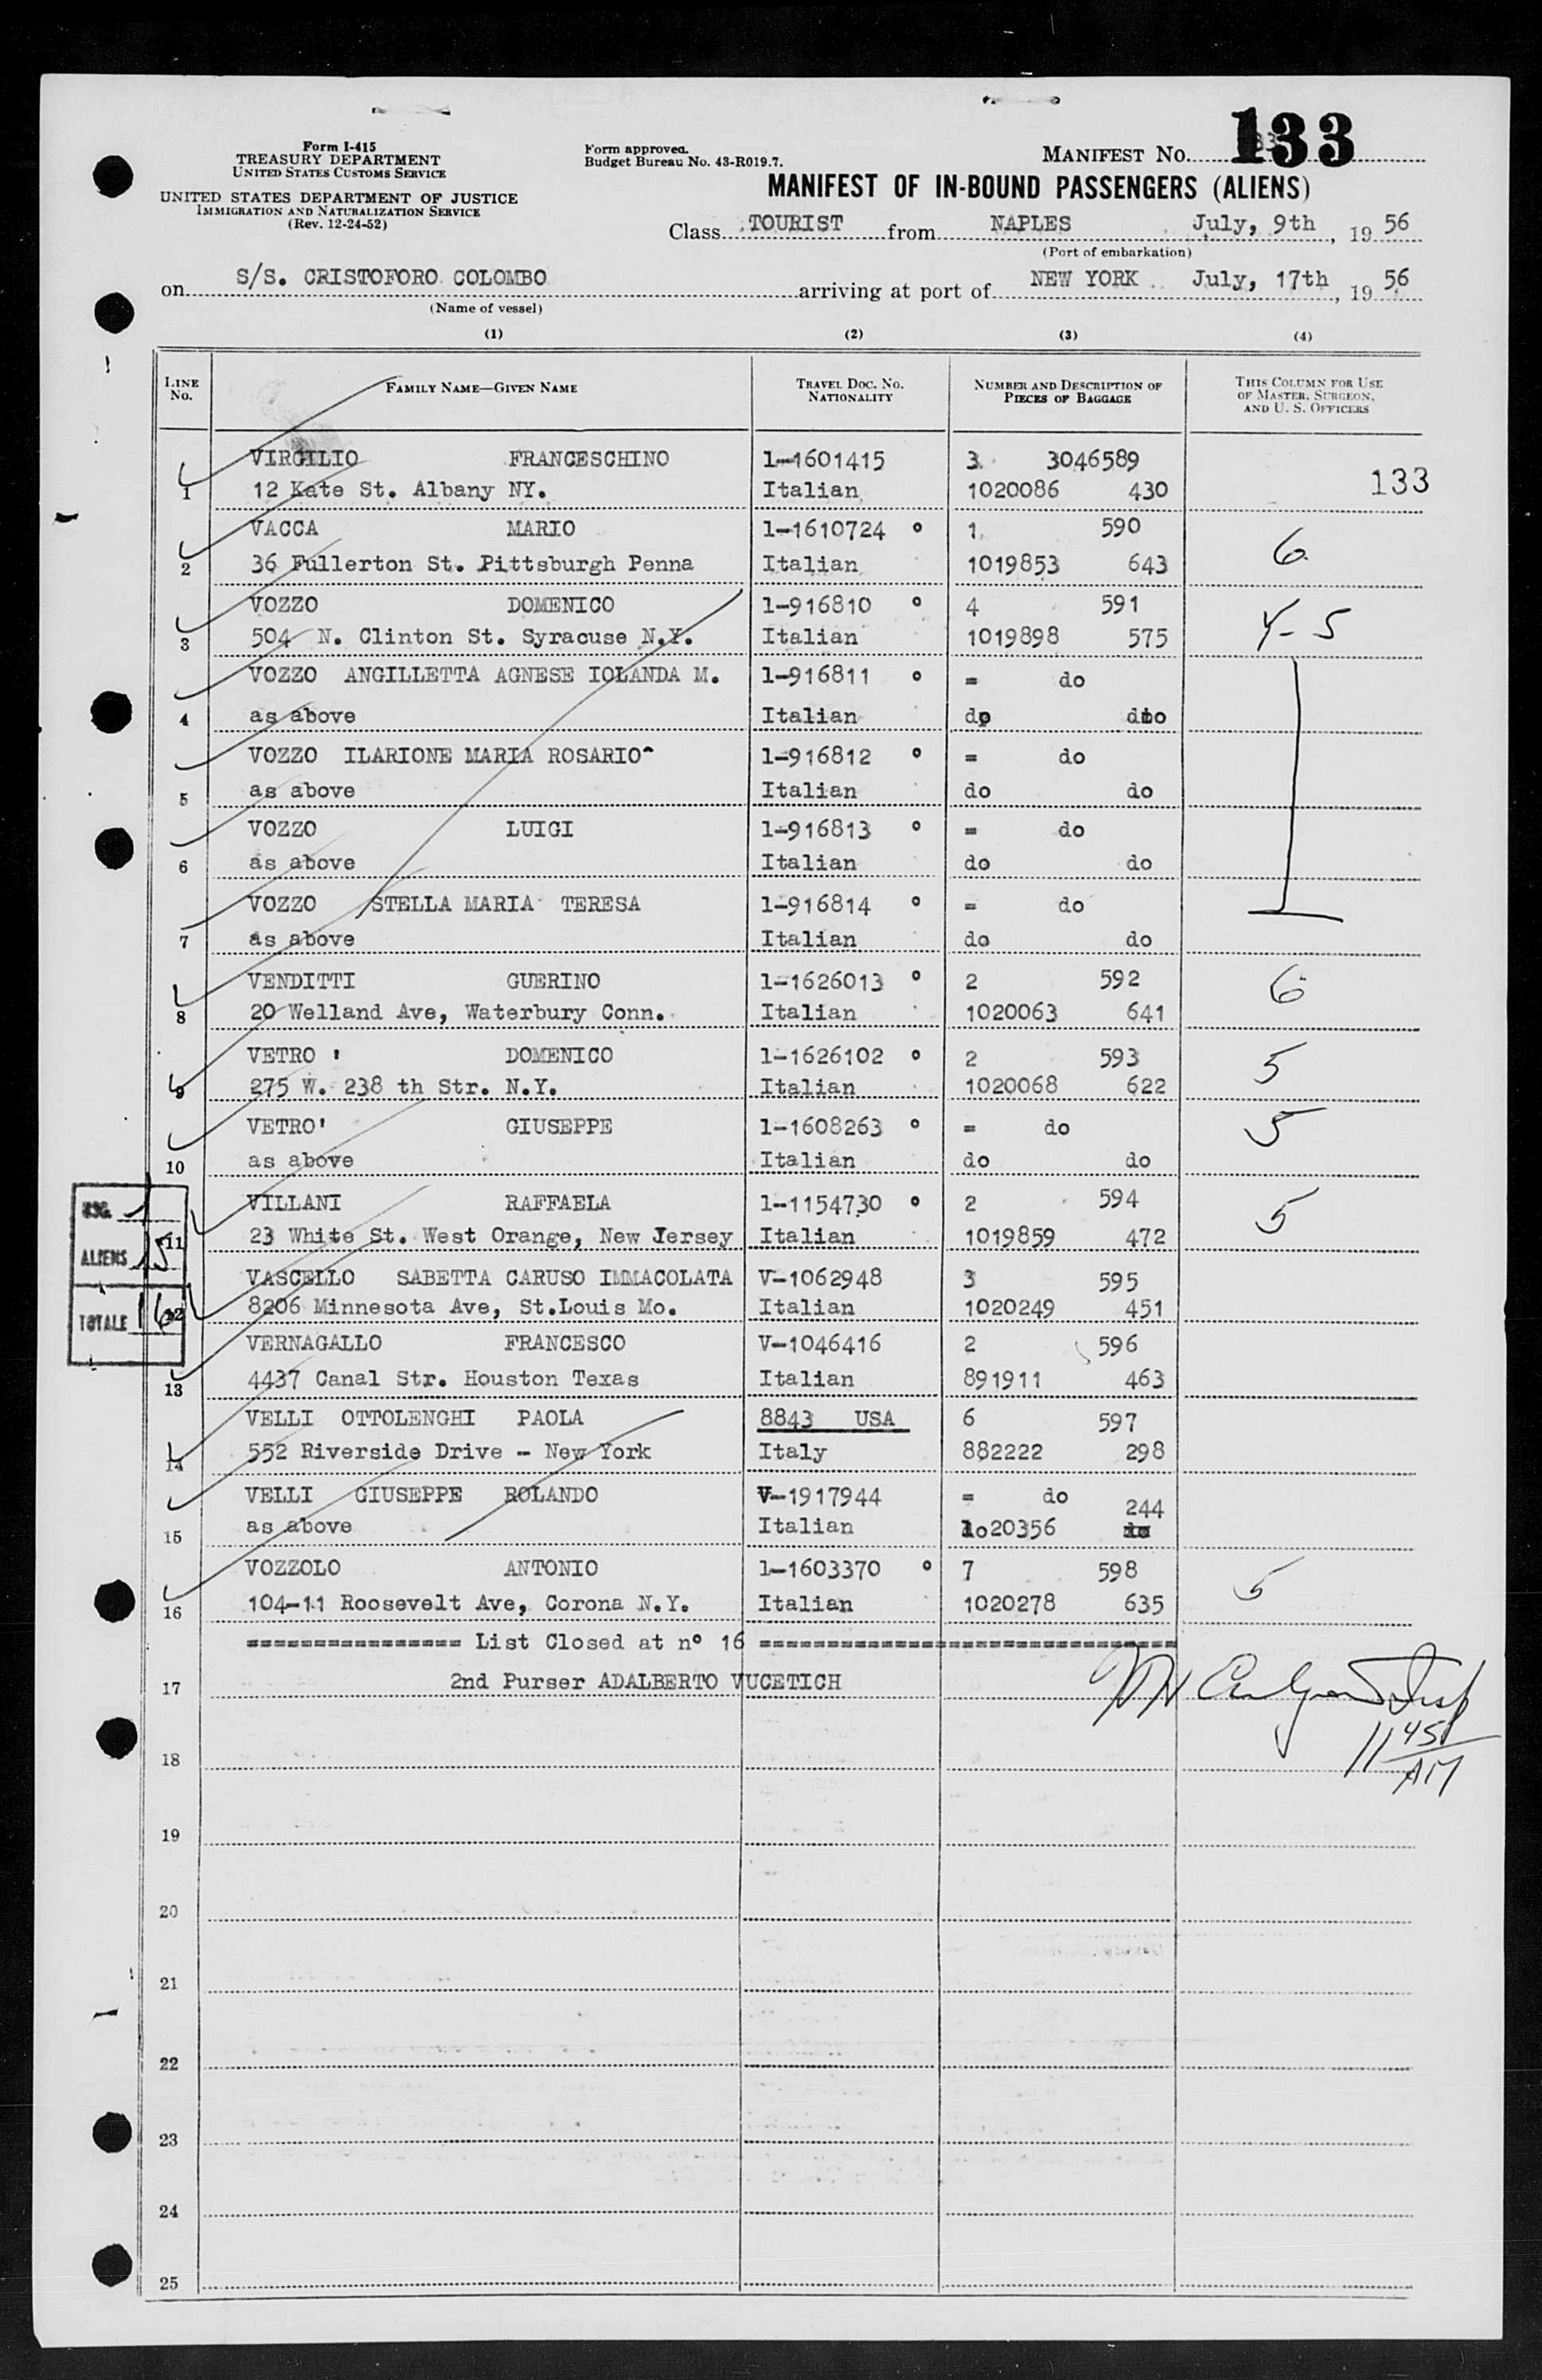 Form I-415
TREASURY DEPARTMENT
UNITED STATES CUSTOMS SERVICE
UNITED STATES DEPARTMENT OF JUSTICE
IMMIGRATION AND NATURALIZATION SERVICE
(Rev. 12-24-52)
Form approved.
Budget Bureau No. 43-R019.7.
MANIFEST No. 133
MANIFEST OF IN-BOUND PASSENGERS (ALIENS)
Class TOURIST from NAPLES July, 9th, 19 56
(Port of embarkation)
on S/S. CRISTOFORO COLOMBO arriving at port of NEW YORK July, 17th, 19 56
(Name of vessel)
(1) (2) (3) (4)
LINE No. FAMILY NAME—GIVEN NAME TRAVEL DOC. NO. NATIONALITY NUMBER AND DESCRIPTION OF PIECES OF BAGGAGE THIS COLUMN FOR USE OF MASTER, SURGEON, AND U. S. OFFICERS
VIRGILIO FRANCESCHINO 1-1601415 3 3046589
1 12 Kate St. Albany NY. Italian 1020086 430 133
VACCA MARIO 1-1610724 ° 1 590
2 36 Fullerton St. Pittsburgh Penna Italian 1019853 643 6
VOZZO DOMENICO 1-916810 ° 4 591
3 504 N. Clinton St. Syracuse N.Y. Italian 1019898 575 4-5
VOZZO ANGILLETTA AGNESE IOLANDA M. 1-916811 ° = do
4 as above Italian do do
VOZZO ILARIONE MARIA ROSARIO 1-916812 ° = do
5 as above Italian do do
VOZZO LUIGI 1-916813 ° = do
6 as above Italian do do
VOZZO STELLA MARIA TERESA 1-916814 ° = do
7 as above Italian do do
VENDITTI GUERINO 1-1626013 ° 2 592 6
8 20 Welland Ave, Waterbury Conn. Italian 1020063 641
VETRO ' DOMENICO 1-1626102 ° 2 593 5
9 275 W. 238 th Str. N.Y. Italian 1020068 622
VETRO' GIUSEPPE 1-1608263 ° = do 5
10 as above Italian do do
VILLANI RAFFAELA 1-1154730 ° 2 594 5
11 23 White St. West Orange, New Jersey Italian 1019859 472
ALIENS 15
VASCELLO SABETTA CARUSO IMMACOLATA V-1062948 3 595
12 8206 Minnesota Ave, St.Louis Mo. Italian 1020249 451
TOTALE 16
VERNAGALLO FRANCESCO V-1046416 2 596
13 4437 Canal Str. Houston Texas Italian 891911 463
VELLI OTTOLENGHI PAOLA 8843 USA 6 597
14 552 Riverside Drive - New York Italy 882222 298
VELLI GIUSEPPE ROLANDO V-1917944 = do 244
15 as above Italian 1020356
VOZZOLO ANTONIO 1-1603370 ° 7 598 5
16 104-11 Roosevelt Ave, Corona N.Y. Italian 1020278 635
================ List Closed at n° 16 ===============================
17 2nd Purser ADALBERTO VUCETICH
11 45 AM
18
19
20
21
22
23
24
25